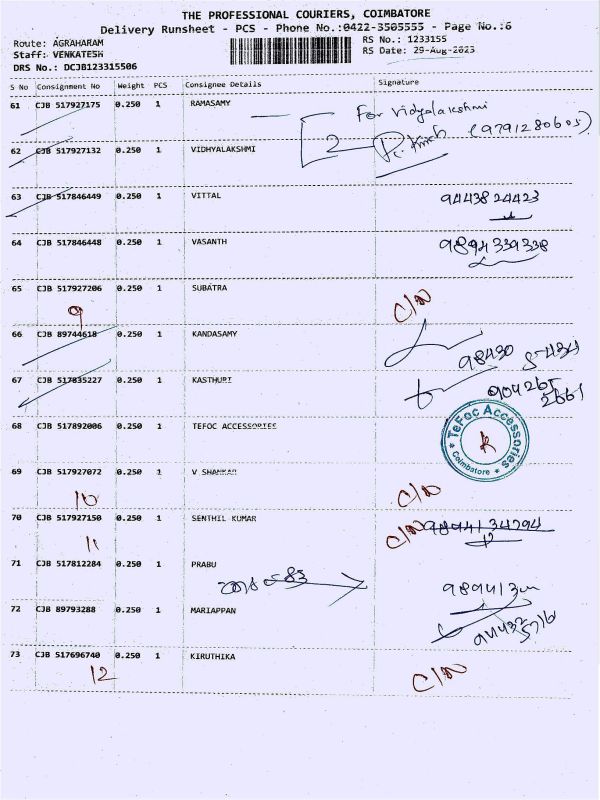 THE PROFESSIONAL COURIERS, COIMBATORE
Delivery Runsheet - PCS - Phone No.:0422-3505555 - Page No.:6
Route: AGRAHARAM
RS No.: 1233155
Staff: VENKATESH
RS Date: 29-Aug-2023
DRS No.: DCJB123315506
S No Consignment No Weight PCS Consignee Details Signature
61 CJB 517927175 0.250 1 RAMASAMY
For Vidyalakshmi
2 (9791280605)
62 CJB 517927132 0.250 1 VIDHYALAKSHMI
63 CJB 517846449 0.250 1 VITTAL 9443824423
64 CJB 517846448 0.250 1 VASANTH 9894339338
65 CJB 517927206 0.250 1 SUBATRA
9 C/N
66 CJB 89744618 0.250 1 KANDASAMY
98430
67 CJB 517835227 0.250 1 KASTHURI
904265
2661
68 CJB 517892006 0.250 1 TEFOC ACCESSORIES
TeFoc Accessories
Coimbatore
69 CJB 517927072 0.250 1 V SHANKAR
10 C/N
70 CJB 517927150 0.250 1 SENTHIL KUMAR
C/N 9894134794
11
71 CJB 517812284 0.250 1 PRABU
72 CJB 89793288 0.250 1 MARIAPPAN
73 CJB 517696740 0.250 1 KIRUTHIKA
12 C/N